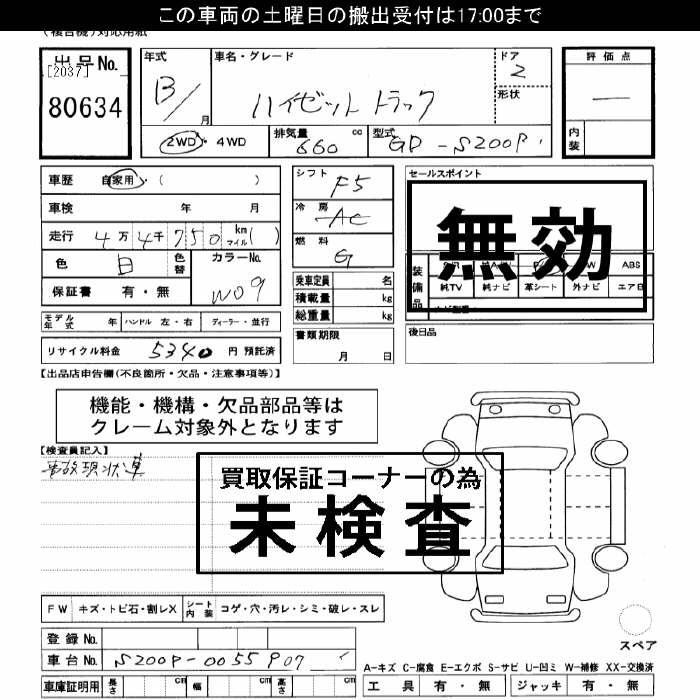 この車両の土曜日の搬出受付は17:00まで
(複合機)対応用紙
出品No.
[2037]
80634
年式
B/
月
車名・グレード
ハイゼット トラック
ドア
2
形状
評価点
—
内装
2WD・4WD
排気量
660
cc
型式
GD-S200P
車歴 自家用・( )
車検 年 月
走行 4万4千750 km マイル( )
色 白 色替
カラーNo.
W09
保証書 有・無
モデル年式 年 ハンドル 左・右 ディーラー・並行
リサイクル料金 5340 円 預託済
シフト F5
冷房 AC
燃料 G
乗車定員 名
積載量 kg
総重量 kg
書類期限
月 日
セールスポイント
無効
装備品
ABS
純TV 純ナビ 革シート 外ナビ エアB
後日品
【出品店申告欄(不良箇所・欠品・注意事項等)】
機能・機構・欠品部品等は
クレーム対象外となります
【検査員記入】
事故現状車
買取保証コーナーの為
未検査
FW キズ・トビ石・割レX シート内装 コゲ・穴・汚レ・シミ・破レ・スレ
登録No.
車台No. S200P-0055907
車庫証明用 長さ cm 幅 cm 高さ cm
スペア
A-キズ C-腐食 E-エクボ S-サビ U-凹ミ W-補修 XX-交換済
工具 有・無 ジャッキ 有・無